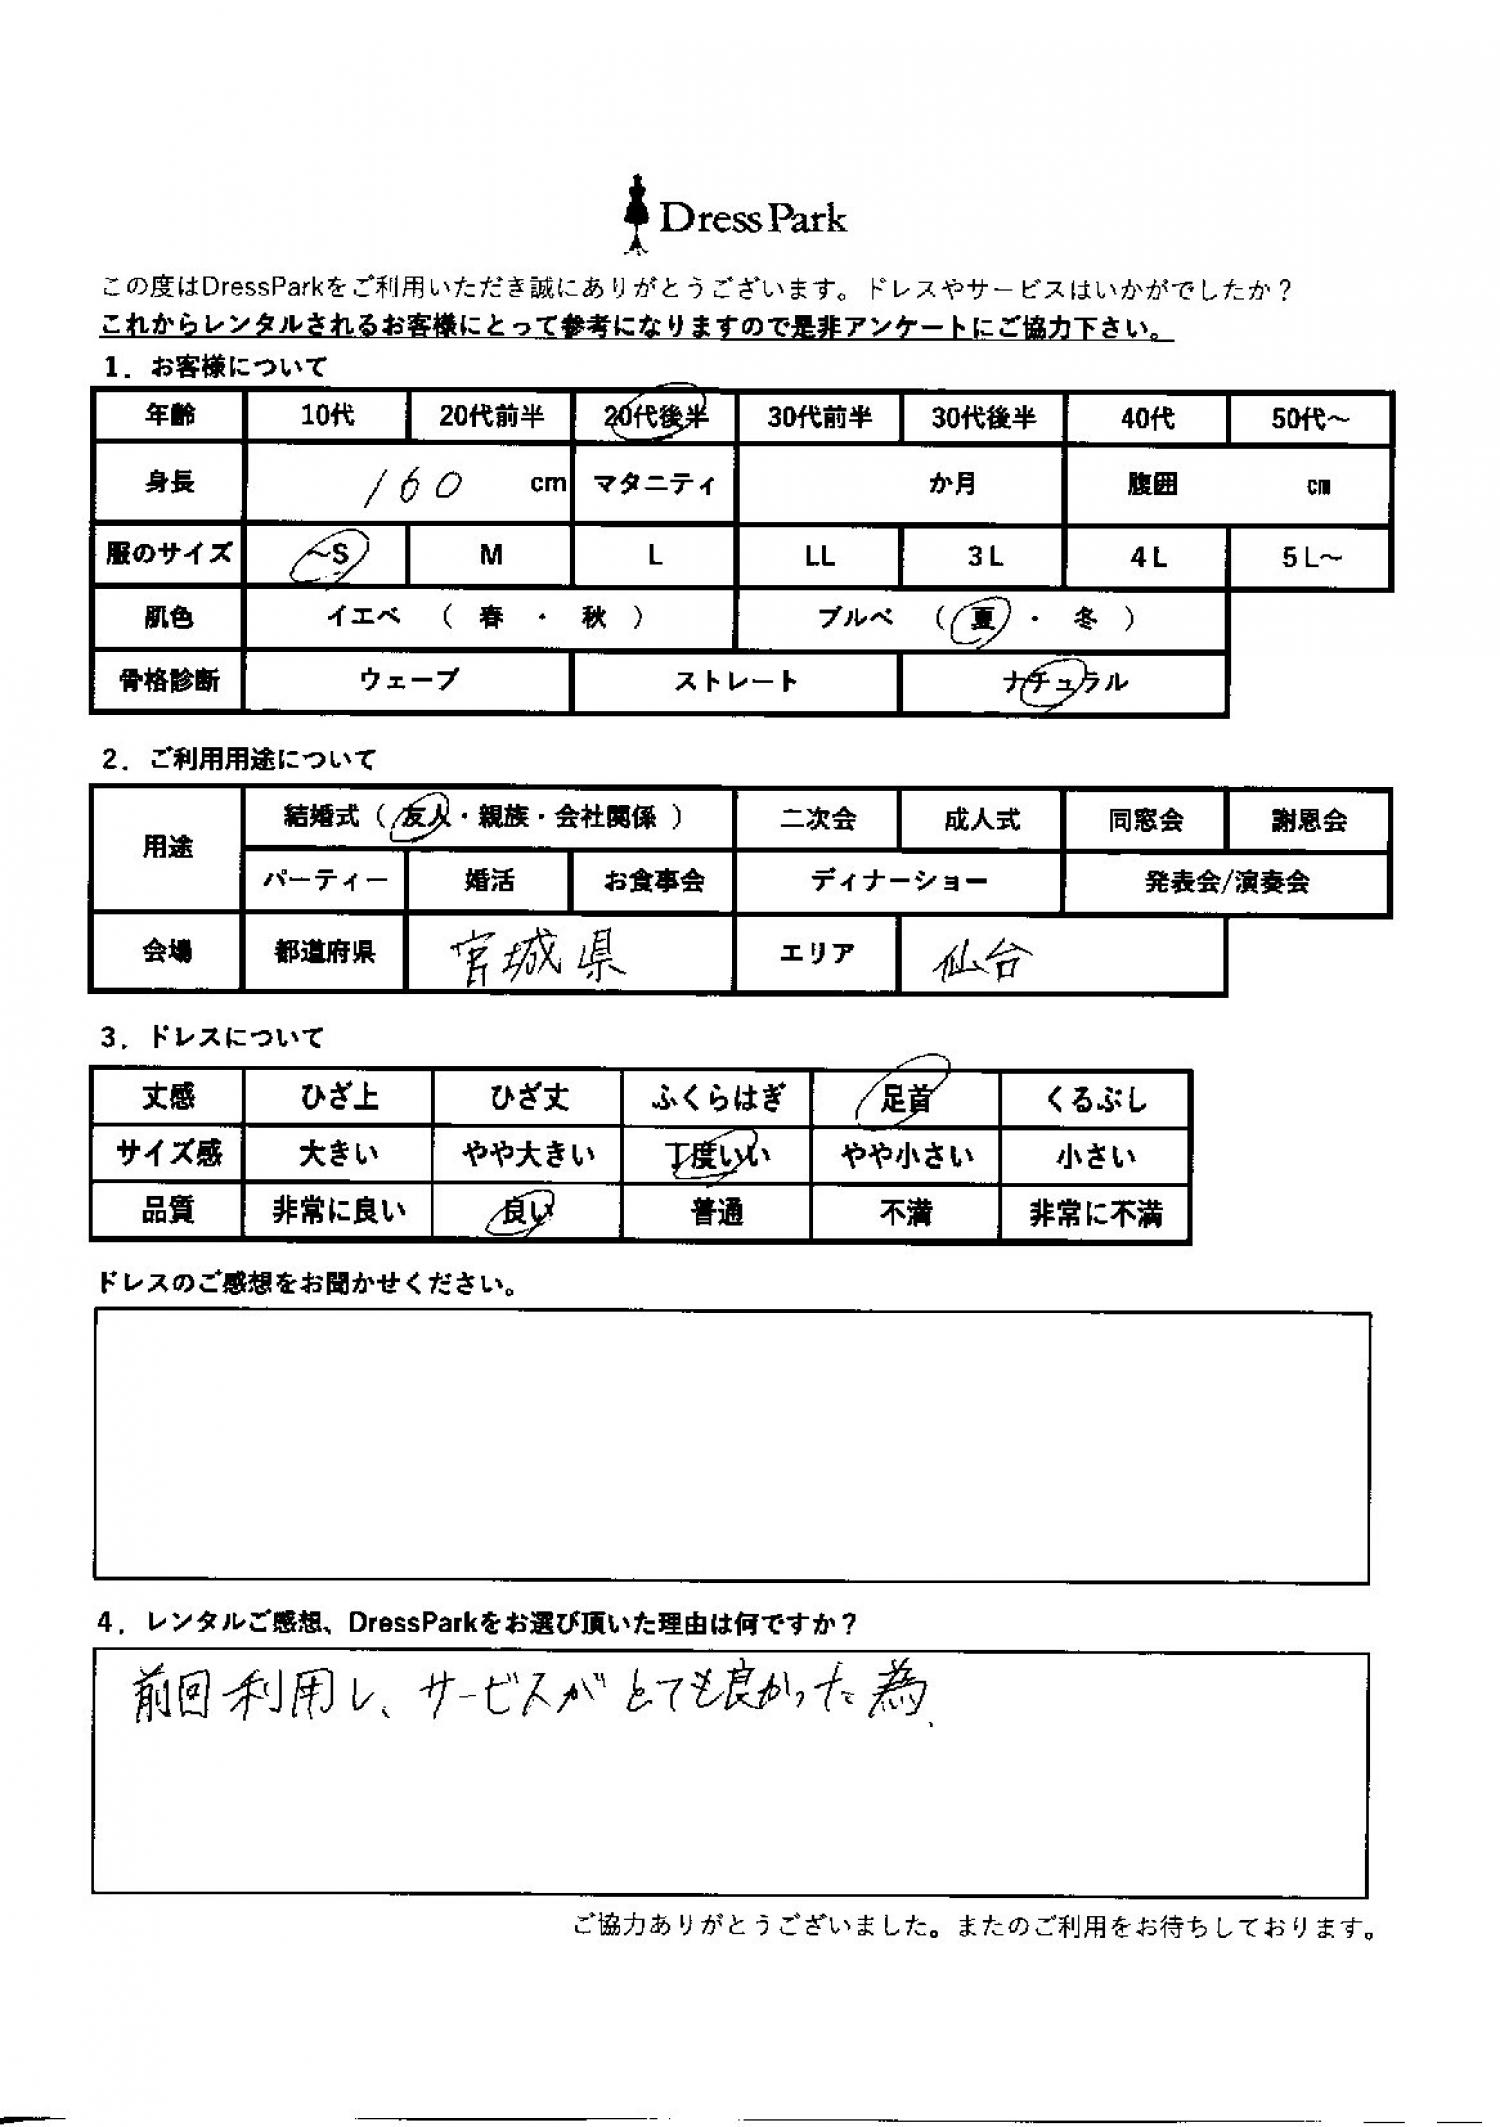 Dress Park
この度はDressParkをご利用いただき誠にありがとうございます。ドレスやサービスはいかがでしたか？
これからレンタルされるお客様にとって参考になりますので是非アンケートにご協力下さい。
1．お客様について
年齢 10代 20代前半 20代後半 30代前半 30代後半 40代 50代～
身長 160 cm マタニティ か月 腹囲 ㎝
服のサイズ ～S M L LL 3L 4L 5L～
肌色 イエベ （ 春 ・ 秋 ） ブルベ （ 夏 ・ 冬 ）
骨格診断 ウェーブ ストレート ナチュラル
2．ご利用用途について
用途 結婚式（ 友人・親族・会社関係 ） 二次会 成人式 同窓会 謝恩会
パーティー 婚活 お食事会 ディナーショー 発表会/演奏会
会場 都道府県 宮城県 エリア 仙台
3．ドレスについて
丈感 ひざ上 ひざ丈 ふくらはぎ 足首 くるぶし
サイズ感 大きい やや大きい 丁度いい やや小さい 小さい
品質 非常に良い 良い 普通 不満 非常に不満
ドレスのご感想をお聞かせください。
4．レンタルご感想、DressParkをお選び頂いた理由は何ですか？
前回利用し、サービスがとても良かった為、
ご協力ありがとうございました。またのご利用をお待ちしております。